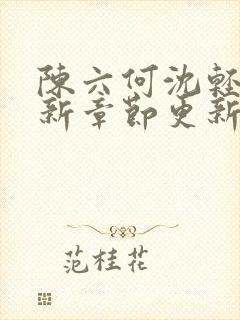 陳六何沈輕
新章節更新
范桂花